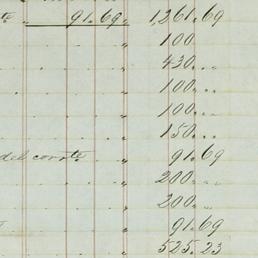 te „ 91.69 „ 1,261.69
„ 100
„ 430...
„ 100...
„ 100...
„ 150...
del corote „ 91.69
„ 200...
„ 200...
„ 91.69
„ 525.23